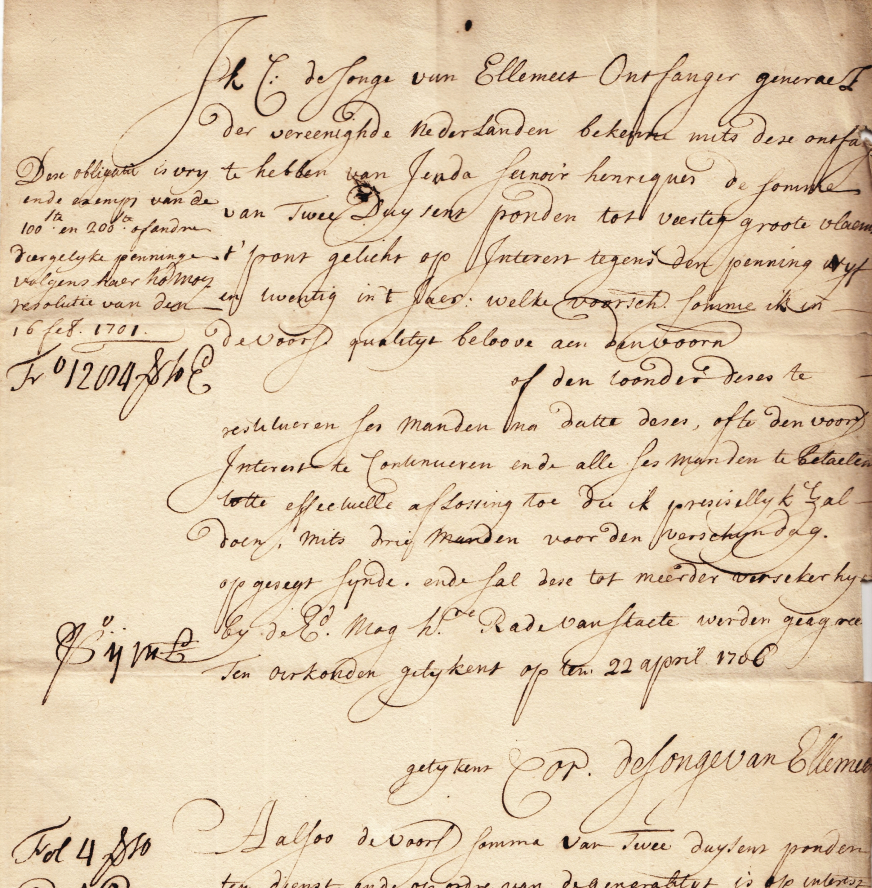 Ik C: de Jonge van Ellemeet Ontfanger generael
der vereenighde nederlanden bekenne mits dese ontfa
te hebben van Jeuda senior henriques de somme
van Twee Duysent ponden tot veertig groote vlaems
t' pont gelicht op Interest tegens den penning vyf
en twentig in't Jaer: welke voorsch. somme ik in
de voors. qualityt beloove aen den voorn
of den toonder deses te
restitueren ses manden na datte deses, ofte den voors
Interest te Continueren ende alle ses manden te betaelen
totte effectuelle aflossing toe die ik presisellyk zal
doen, mits drie manden voor den verschyndag.
opgesegt synde. ende sal dese tot meerder versekerhy
by de Ed. Mog h.re Rade van staete werden geagree
Ten oirkonden getykent op ten 22 april 1706
getykent Cor. de Jonge van Ellemee
Dese obligatie is vry
ende exempt van de
100ste en 200ste of andre
diergelyke penninge
volgens haer ho: mog:
resolutie van den
16 feb. 1701.
Fol 4
Aalsoo de voors somma van Twee duysent ponden
ten dienst ende op ordre van de generalityt is op interest